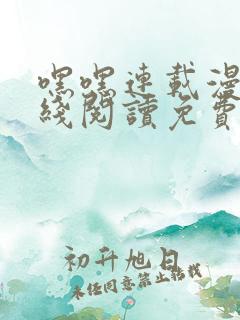 嘿嘿連載漫
綫閱讀免費
初升旭日
未经同意禁止转载